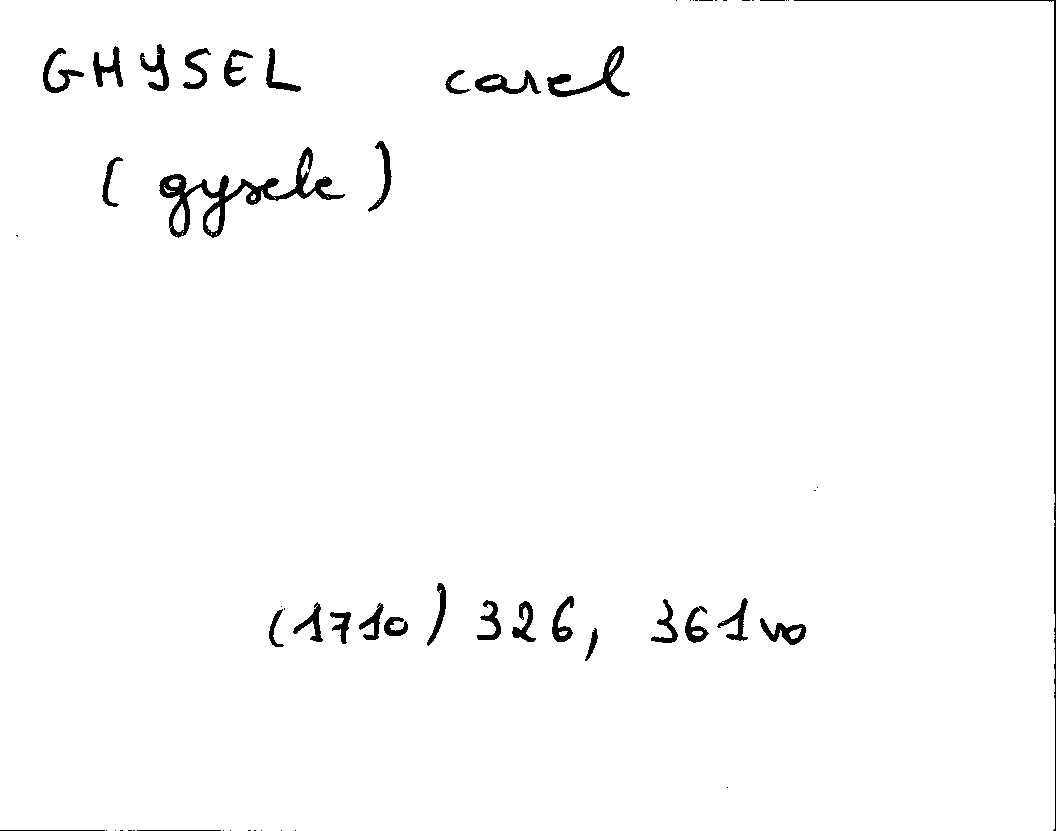 GHYSEL carel
(gysele)
(1710) 326, 361vo